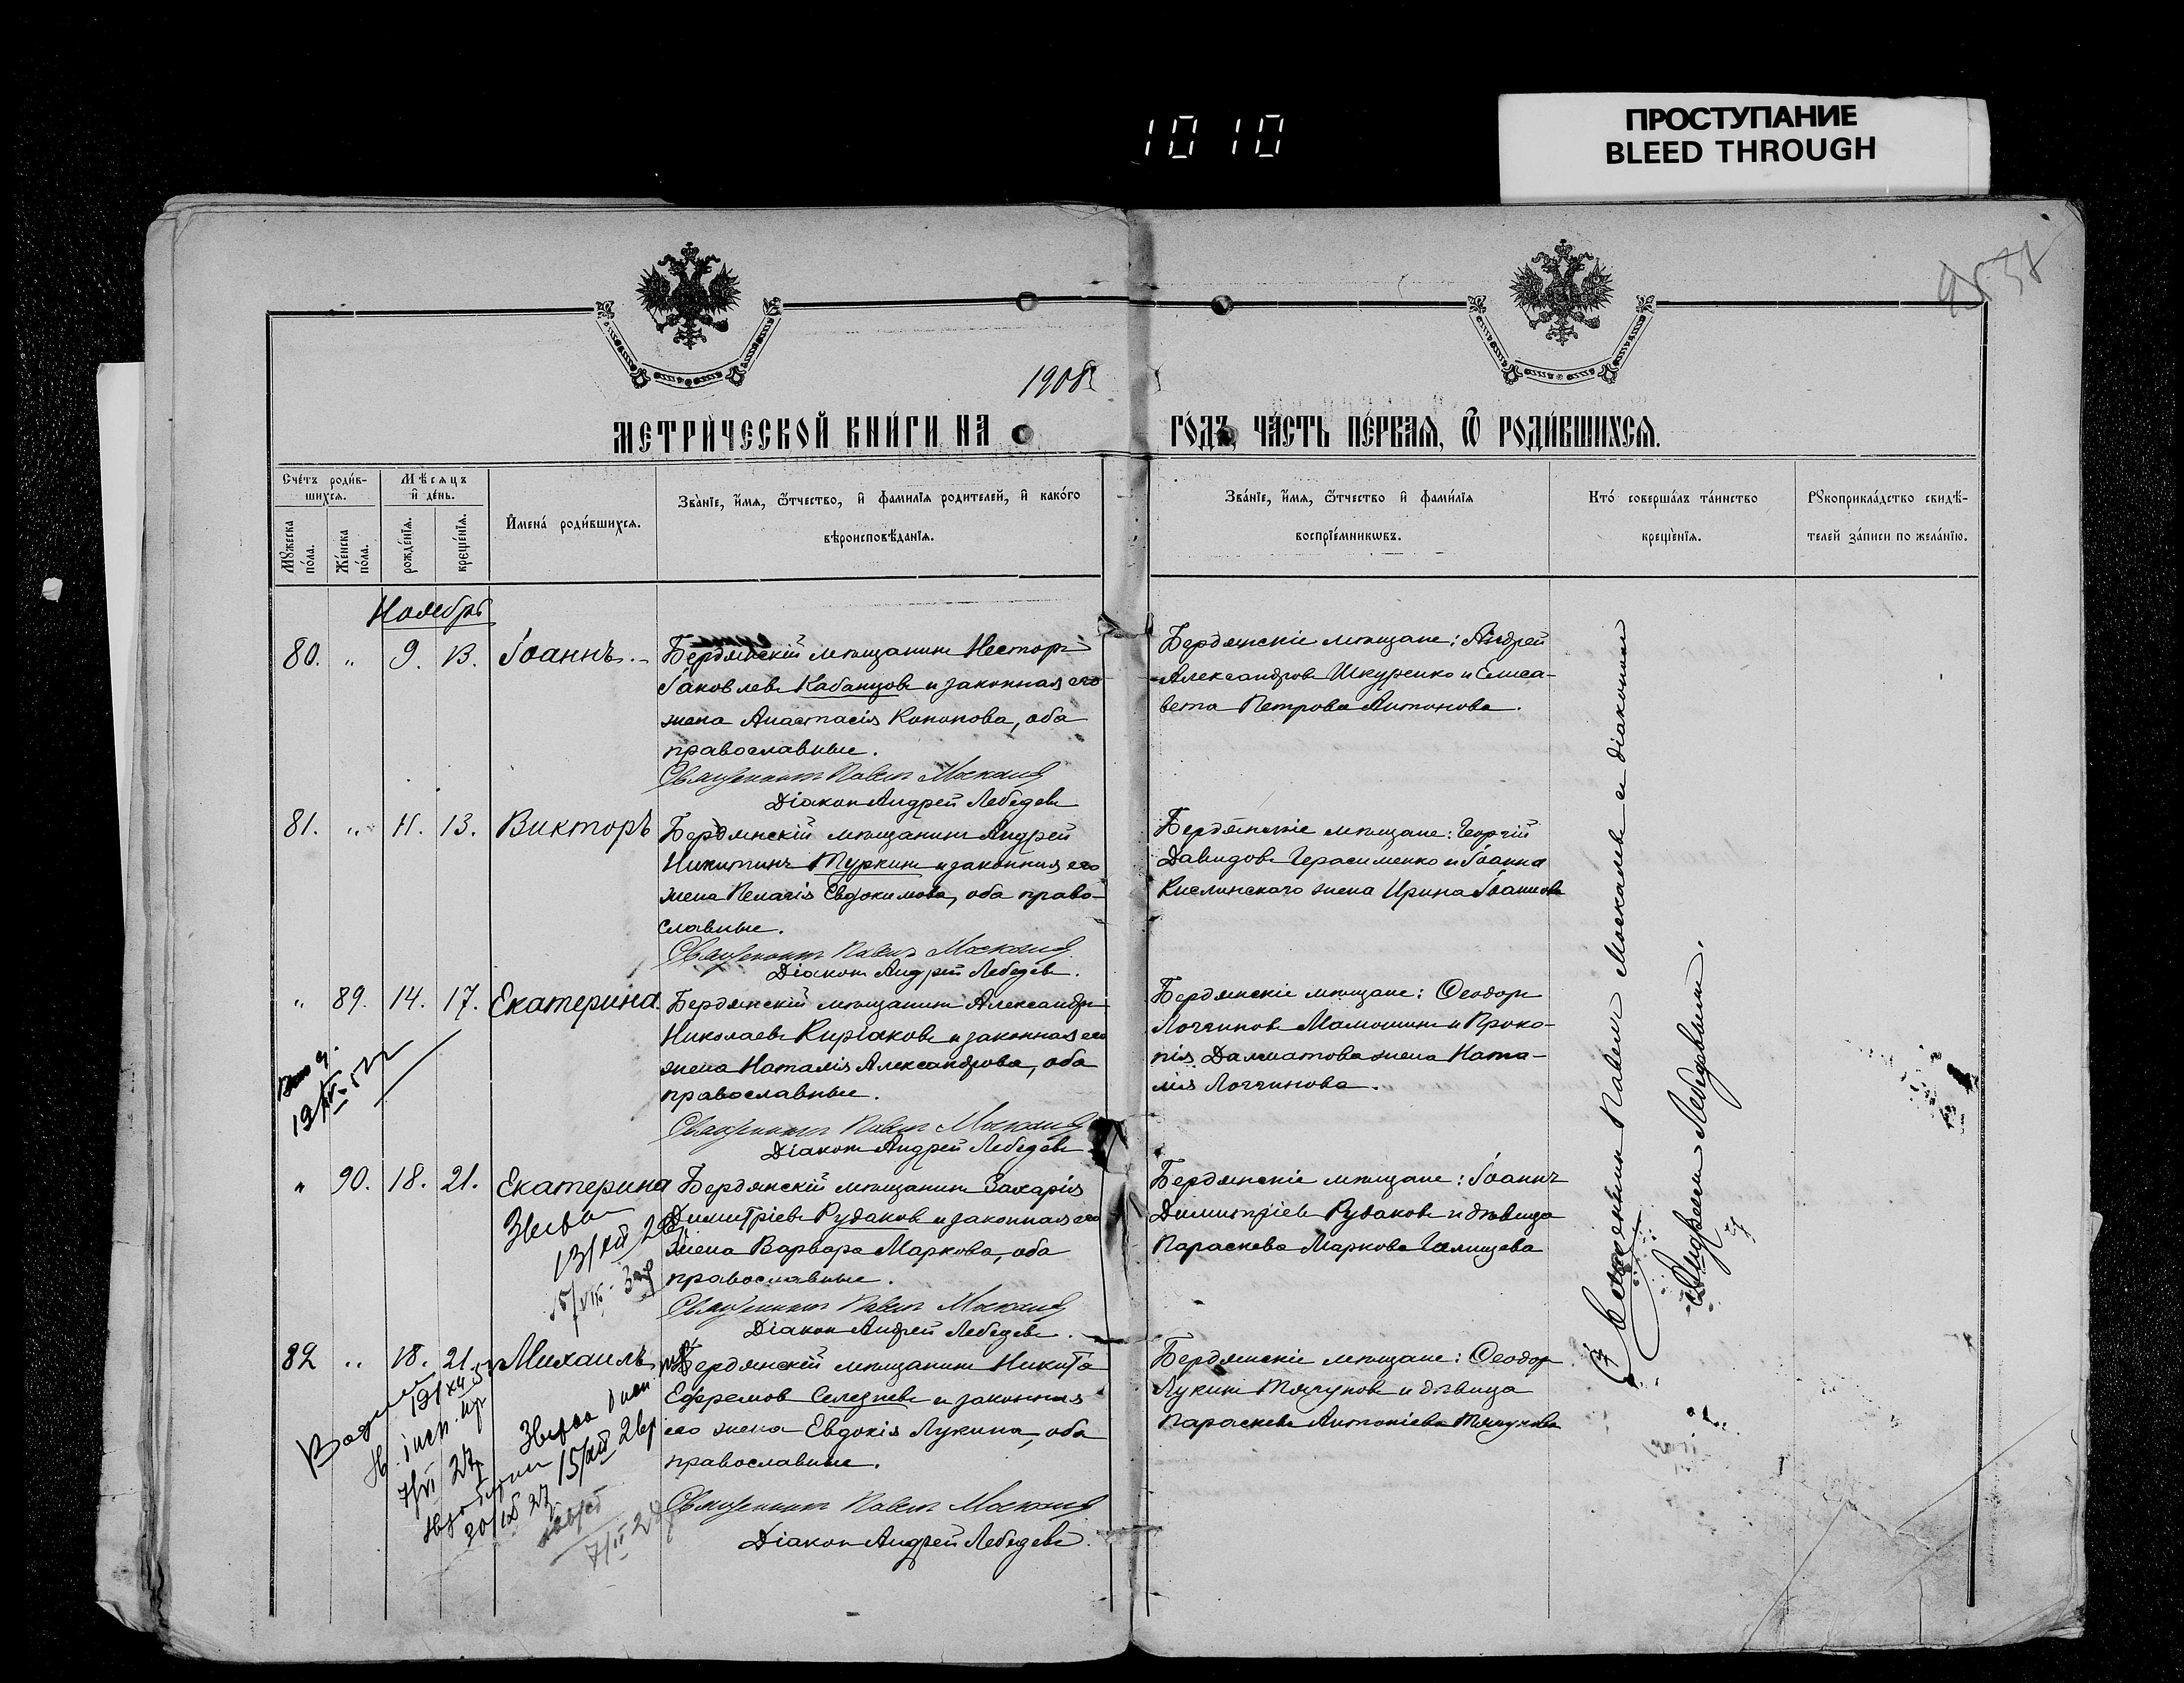 10 10
ПРОСТУПАНИЕ
BLEED THROUGH
1908
МЕТРИ́ЧЕСКОЙ КНИ́ГИ НА
ГО́ДЪ, ЧА́СТЬ ПЕ́РВАѦ, Ѿ РОДИ́ВШИХСѦ.
Сче́тъ роди́в-
шихсѧ.
Мѣсѧцъ
и де́нь.
Мꙋжеска
по́ла.
Же́нска
по́ла.
рожде́нїѧ.
креще́нїѧ.
Имена́ роди́вшихсѧ.
Зва́нїе, и́мѧ, ѻ́тчество, и фами́лїѧ родителей, и како́го
вѣроисповѣ́данїѧ.
Зва́нїе, и́мѧ, ѻ́тчество и фами́лїѧ
воспрїе́мникѡвъ.
Кто́ соверша́лъ та́инство
креще́нїѧ.
Рꙋкоприкла́дство свидѣ́-
телей за́писи по жела́нїю.
Ноябрь
80. " 9. 13. Іоаннъ.
Бердянскій мѣщанинъ Несторъ
Іаковлевъ Кабанцовъ и законная его
жена Анастасія Кононова, оба
православные.
Священникъ Павелъ Москалевъ
Діаконъ Андрей Лебедевъ
Бердянскіе мѣщане: Андрей
Александровъ Шкуренко и Елиса-
вета Петрова Антонова.
81. " 11. 13. Викторъ
Бердянскій мѣщанинъ Андрей
Никитинъ Туркинъ и законная его
жена Пелагія Евдокимова, оба право-
славные.
Священникъ Павелъ Москалевъ
Діаконъ Андрей Лебедевъ.
Бердянскіе мѣщане: Георгій
Давидовъ Герасименко и Іоанна
Кислинскаго жена Ирина Іоаннова
" 89. 14. 17. Екатерина.
Бердянскій мѣщанинъ Александръ
Николаевъ Киріаковъ и законная его
жена Наталія Александрова, оба
православные.
Священникъ Павелъ Москалевъ
Діаконъ Андрей Лебедевъ
Бердянскіе мѣщане: Ѳеодоръ
Логгиновъ Мамошинъ и Проко-
пія Далматова жена Ната-
лія Логгинова.
" 90. 18. 21. Екатерина
Бердянскій мѣщанинъ Захарія
Димитріевъ Рудаковъ и законная его
жена Варвара Маркова, оба
православные.
Священникъ Павелъ Москалевъ
Діаконъ Андрей Лебедевъ.
Бердянскіе мѣщане: Іоаннъ
Димитріевъ Рудаковъ и дѣвица
Параскева Маркова Галицева
82 " 18. 21. Михаилъ
Бердянскій мѣщанинъ Никита
Ефремовъ Селезневъ и законная
его жена Евдокія Лукина, оба
православные.
Священникъ Павелъ Москалевъ
Діаконъ Андрей Лебедевъ.
Бердянскіе мѣщане: Ѳеодоръ
Лукинъ Тягуновъ и дѣвица
Параскева Антоніева Тягунова
Священникъ Павелъ Москалевъ и діакономъ
Андреемъ Лебедевымъ.